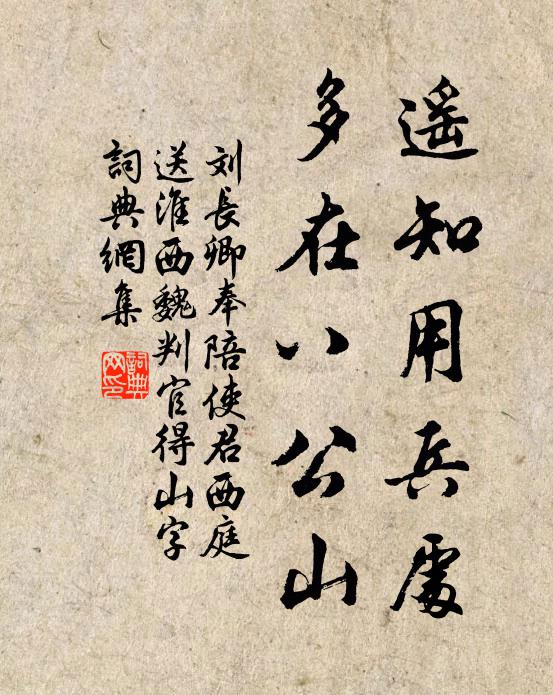 遥知用兵處
多在八公山
刘長卿奉陪使君西庭
送淮西魏判官得山字
詞典網集
詞典網印